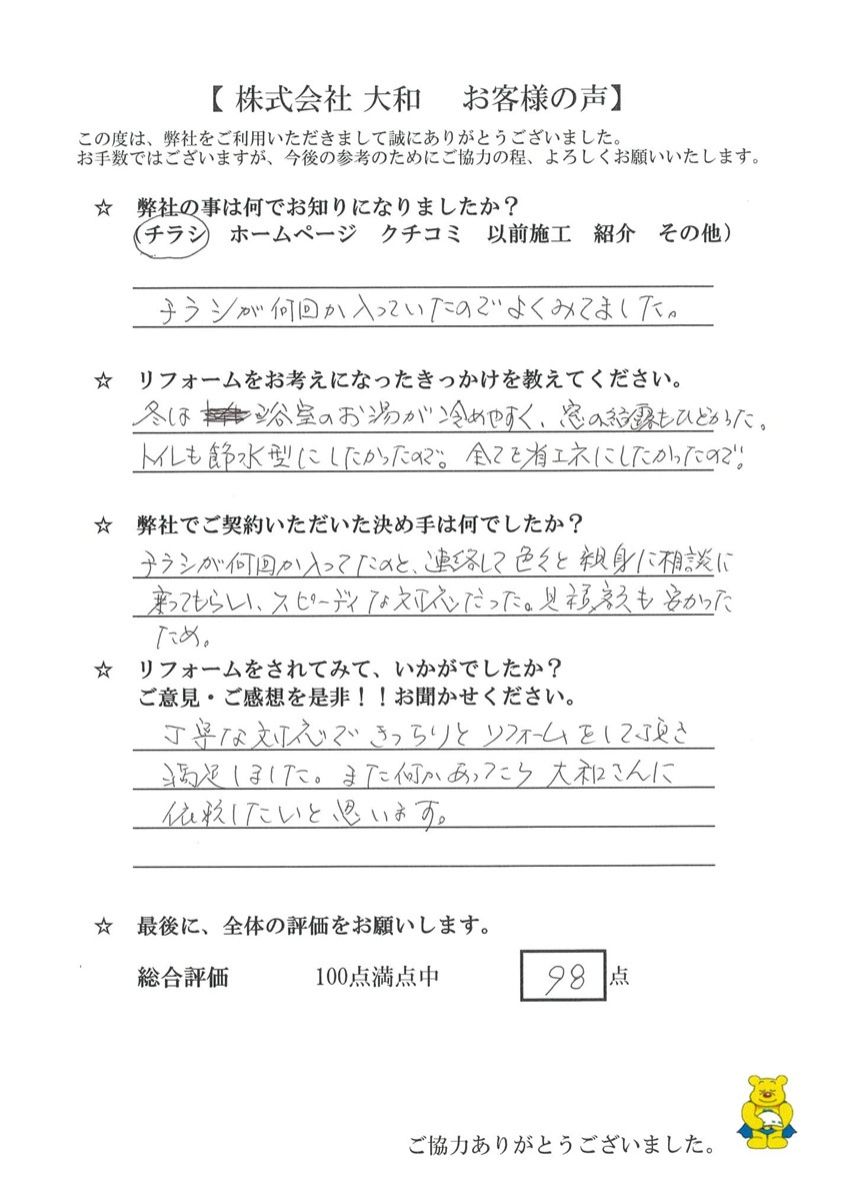 【 株式会社 大和　お客様の声】
この度は、弊社をご利用いただきまして誠にありがとうございました。
お手数ではございますが、今後の参考のためにご協力の程、よろしくお願いいたします。
☆ 弊社の事は何でお知りになりましたか？
（チラシ　ホームページ　クチコミ　以前施工　紹介　その他）
チラシが何回か入っていたのでよくみてました。
☆ リフォームをお考えになったきっかけを教えてください。
冬は浴室のお湯が冷めやすく、窓の結露もひどかった。
トイレも節水型にしたかったので。全てを省エネにしたかったので。
☆ 弊社でご契約いただいた決め手は何でしたか？
チラシが何回か入ってたのと、連絡して色々と親身に相談に
乗ってもらい、スピーディな対応だった。見積額も安かった
ため。
☆ リフォームをされてみて、いかがでしたか？
ご意見・ご感想を是非！！お聞かせください。
丁寧な対応できっちりとリフォームをして頂き
満足しました。また何かあったら大和さんに
依頼したいと思います。
☆ 最後に、全体の評価をお願いします。
総合評価　100点満点中　98点
ご協力ありがとうございました。